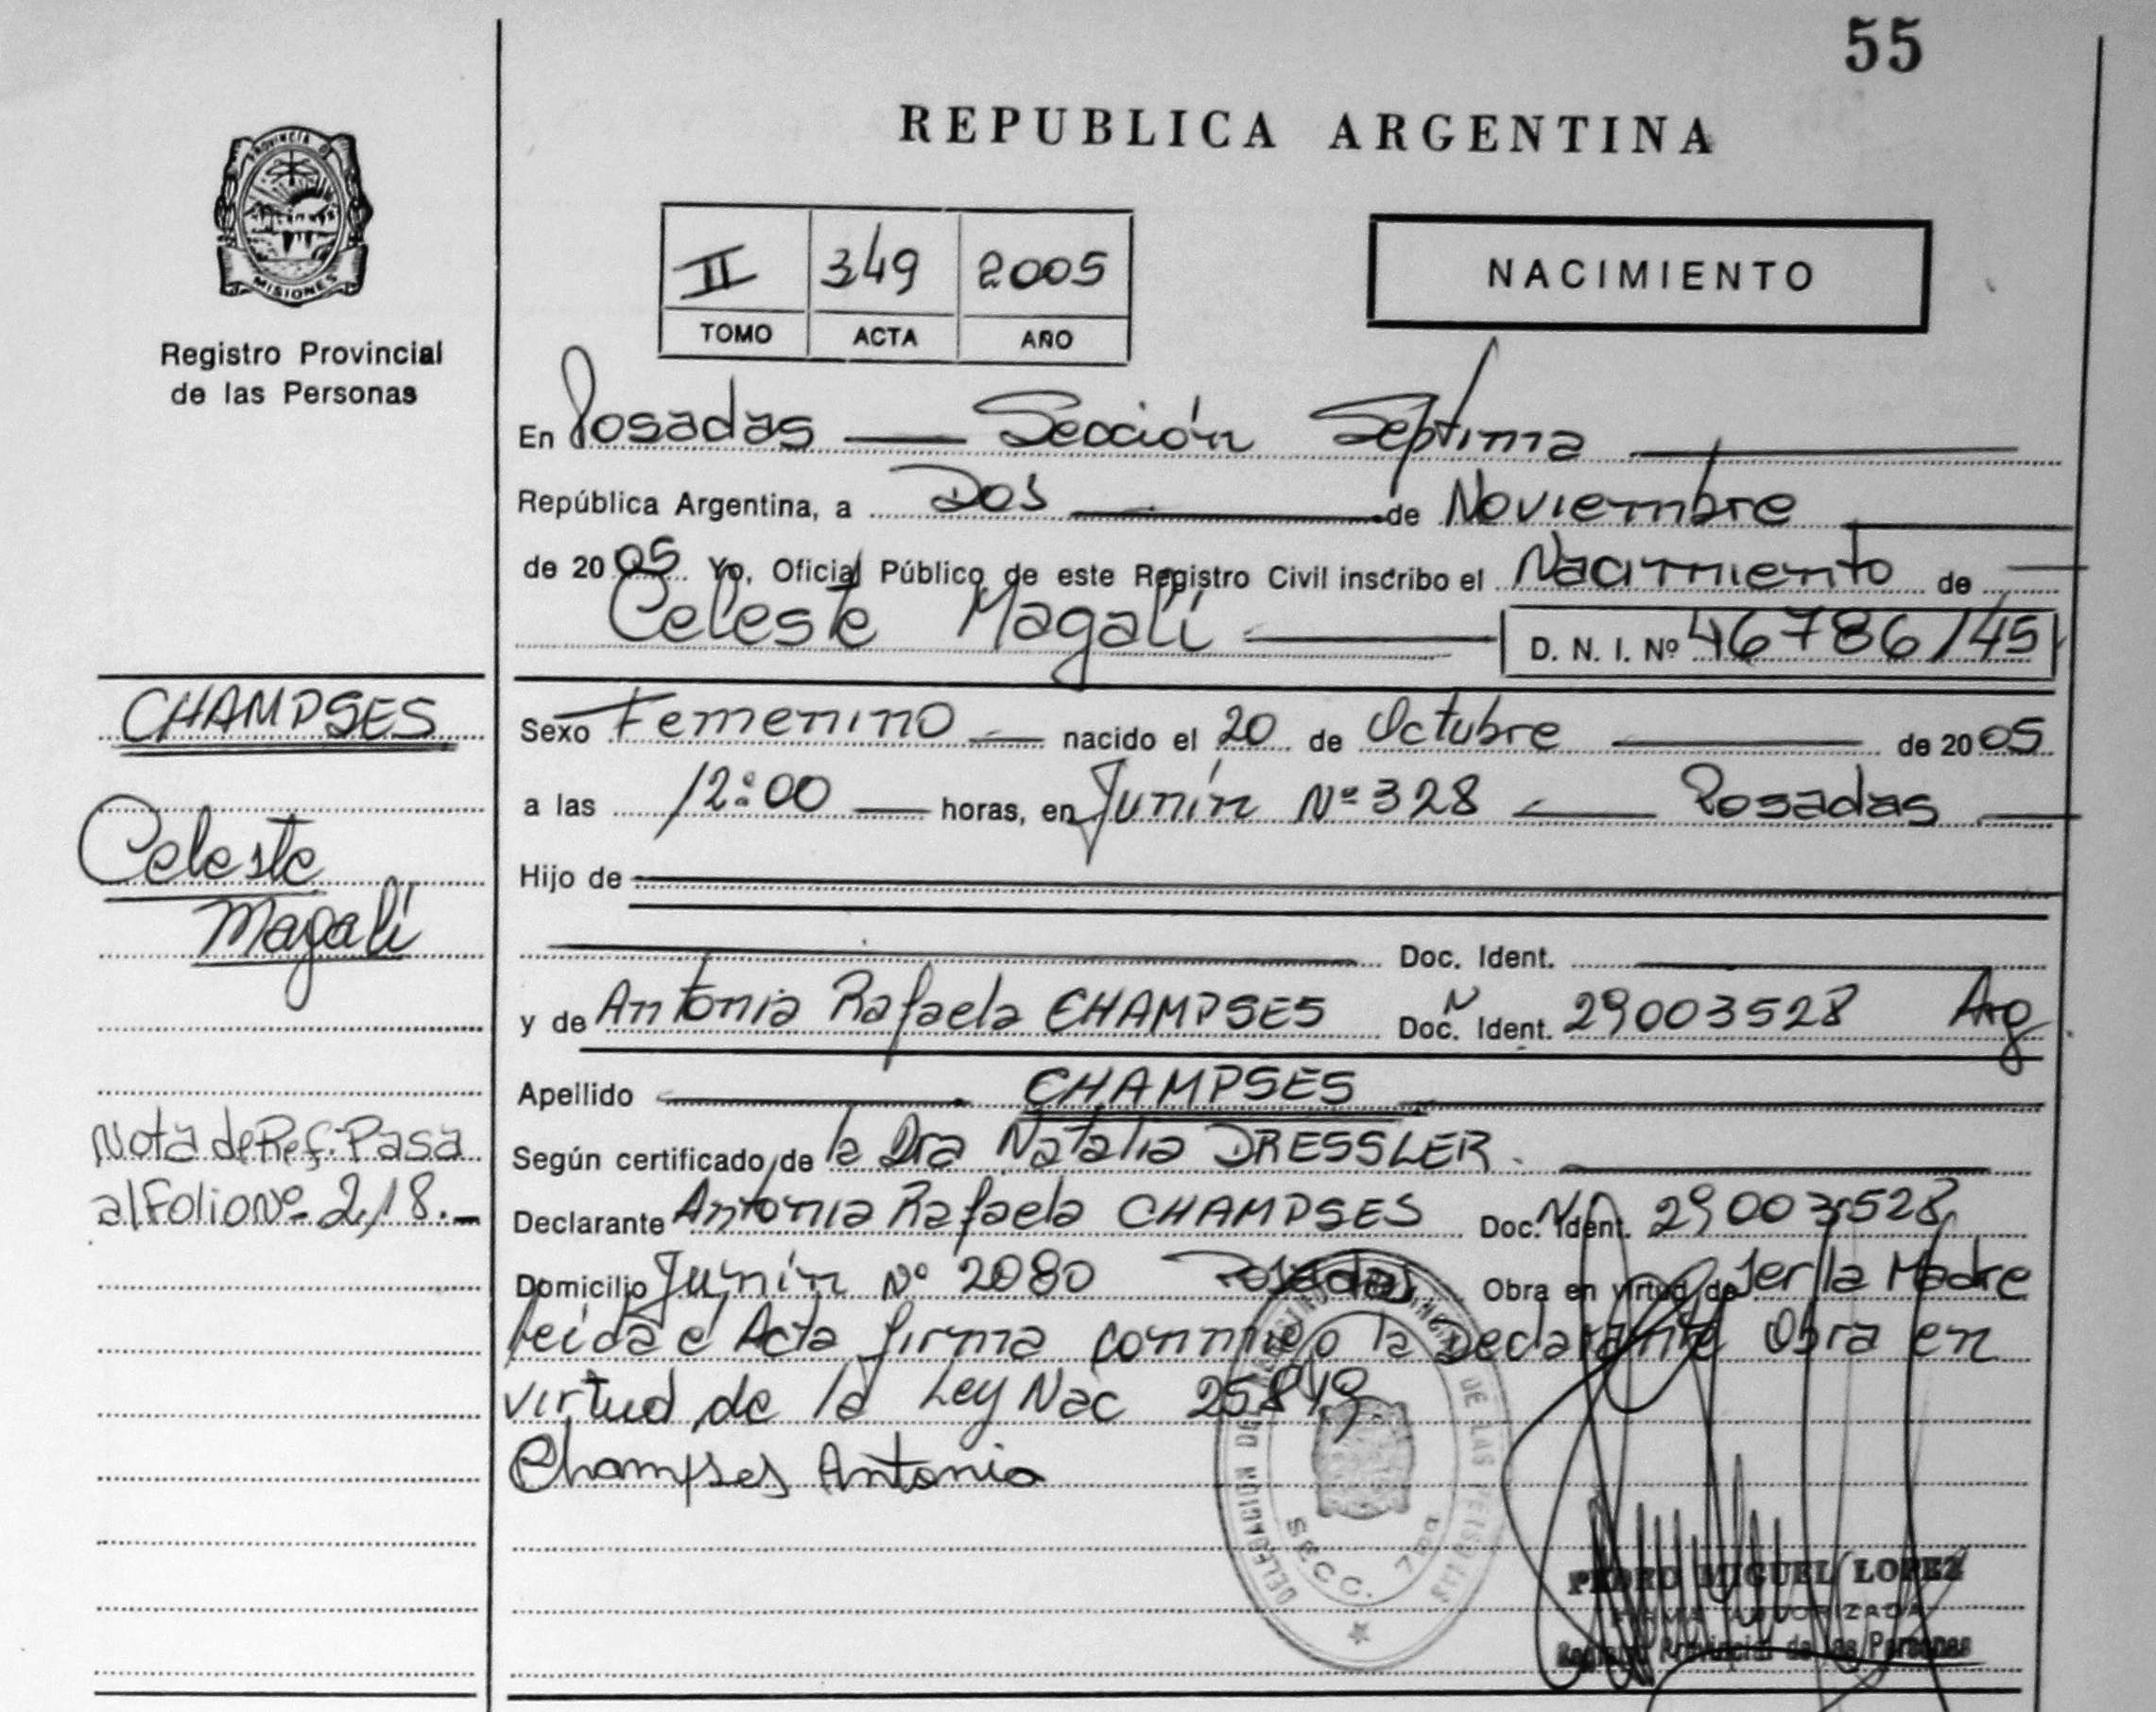 55
REPUBLICA ARGENTINA
PROVINCIA DE
MISIONES
Registro Provincial
de las Personas
II 349 2005
TOMO ACTA AÑO
NACIMIENTO
En Posadas Sección Séptima
República Argentina, a Dos de Noviembre
de 2005 Yo, Oficial Público de este Registro Civil inscribo el Nacimiento de
Celeste Magalí D. N. I. Nº 46786145
CHAMPSES
Celeste
Magalí
Sexo Femenino nacido el 20 de Octubre de 2005
a las 12:00 horas, en Junín Nº 328 Posadas
Hijo de
Doc. Ident.
y de Antonia Rafaela CHAMPSES Doc. N Ident. 29003528 Arg.
Apellido CHAMPSES
Nota de Ref. Pasa
al Folio Nº 218.-
Según certificado de la Dra Natalia DRESSLER.
Declarante Antonia Rafaela CHAMPSES Doc. N Ident. 29003528
Domicilio Junín Nº 2080 Posadas Obra en virtud de ser la Madre
leida el Acta firma conmigo la Declarante Obra en
virtud de la Ley Nac 25819
Champses Antonia
DELEGACION DE LAS PERSONAS
SECC. 7ma
PEDRO MIGUEL LOPEZ
FIRMA AUTORIZADA
Registro Provincial de las Personas